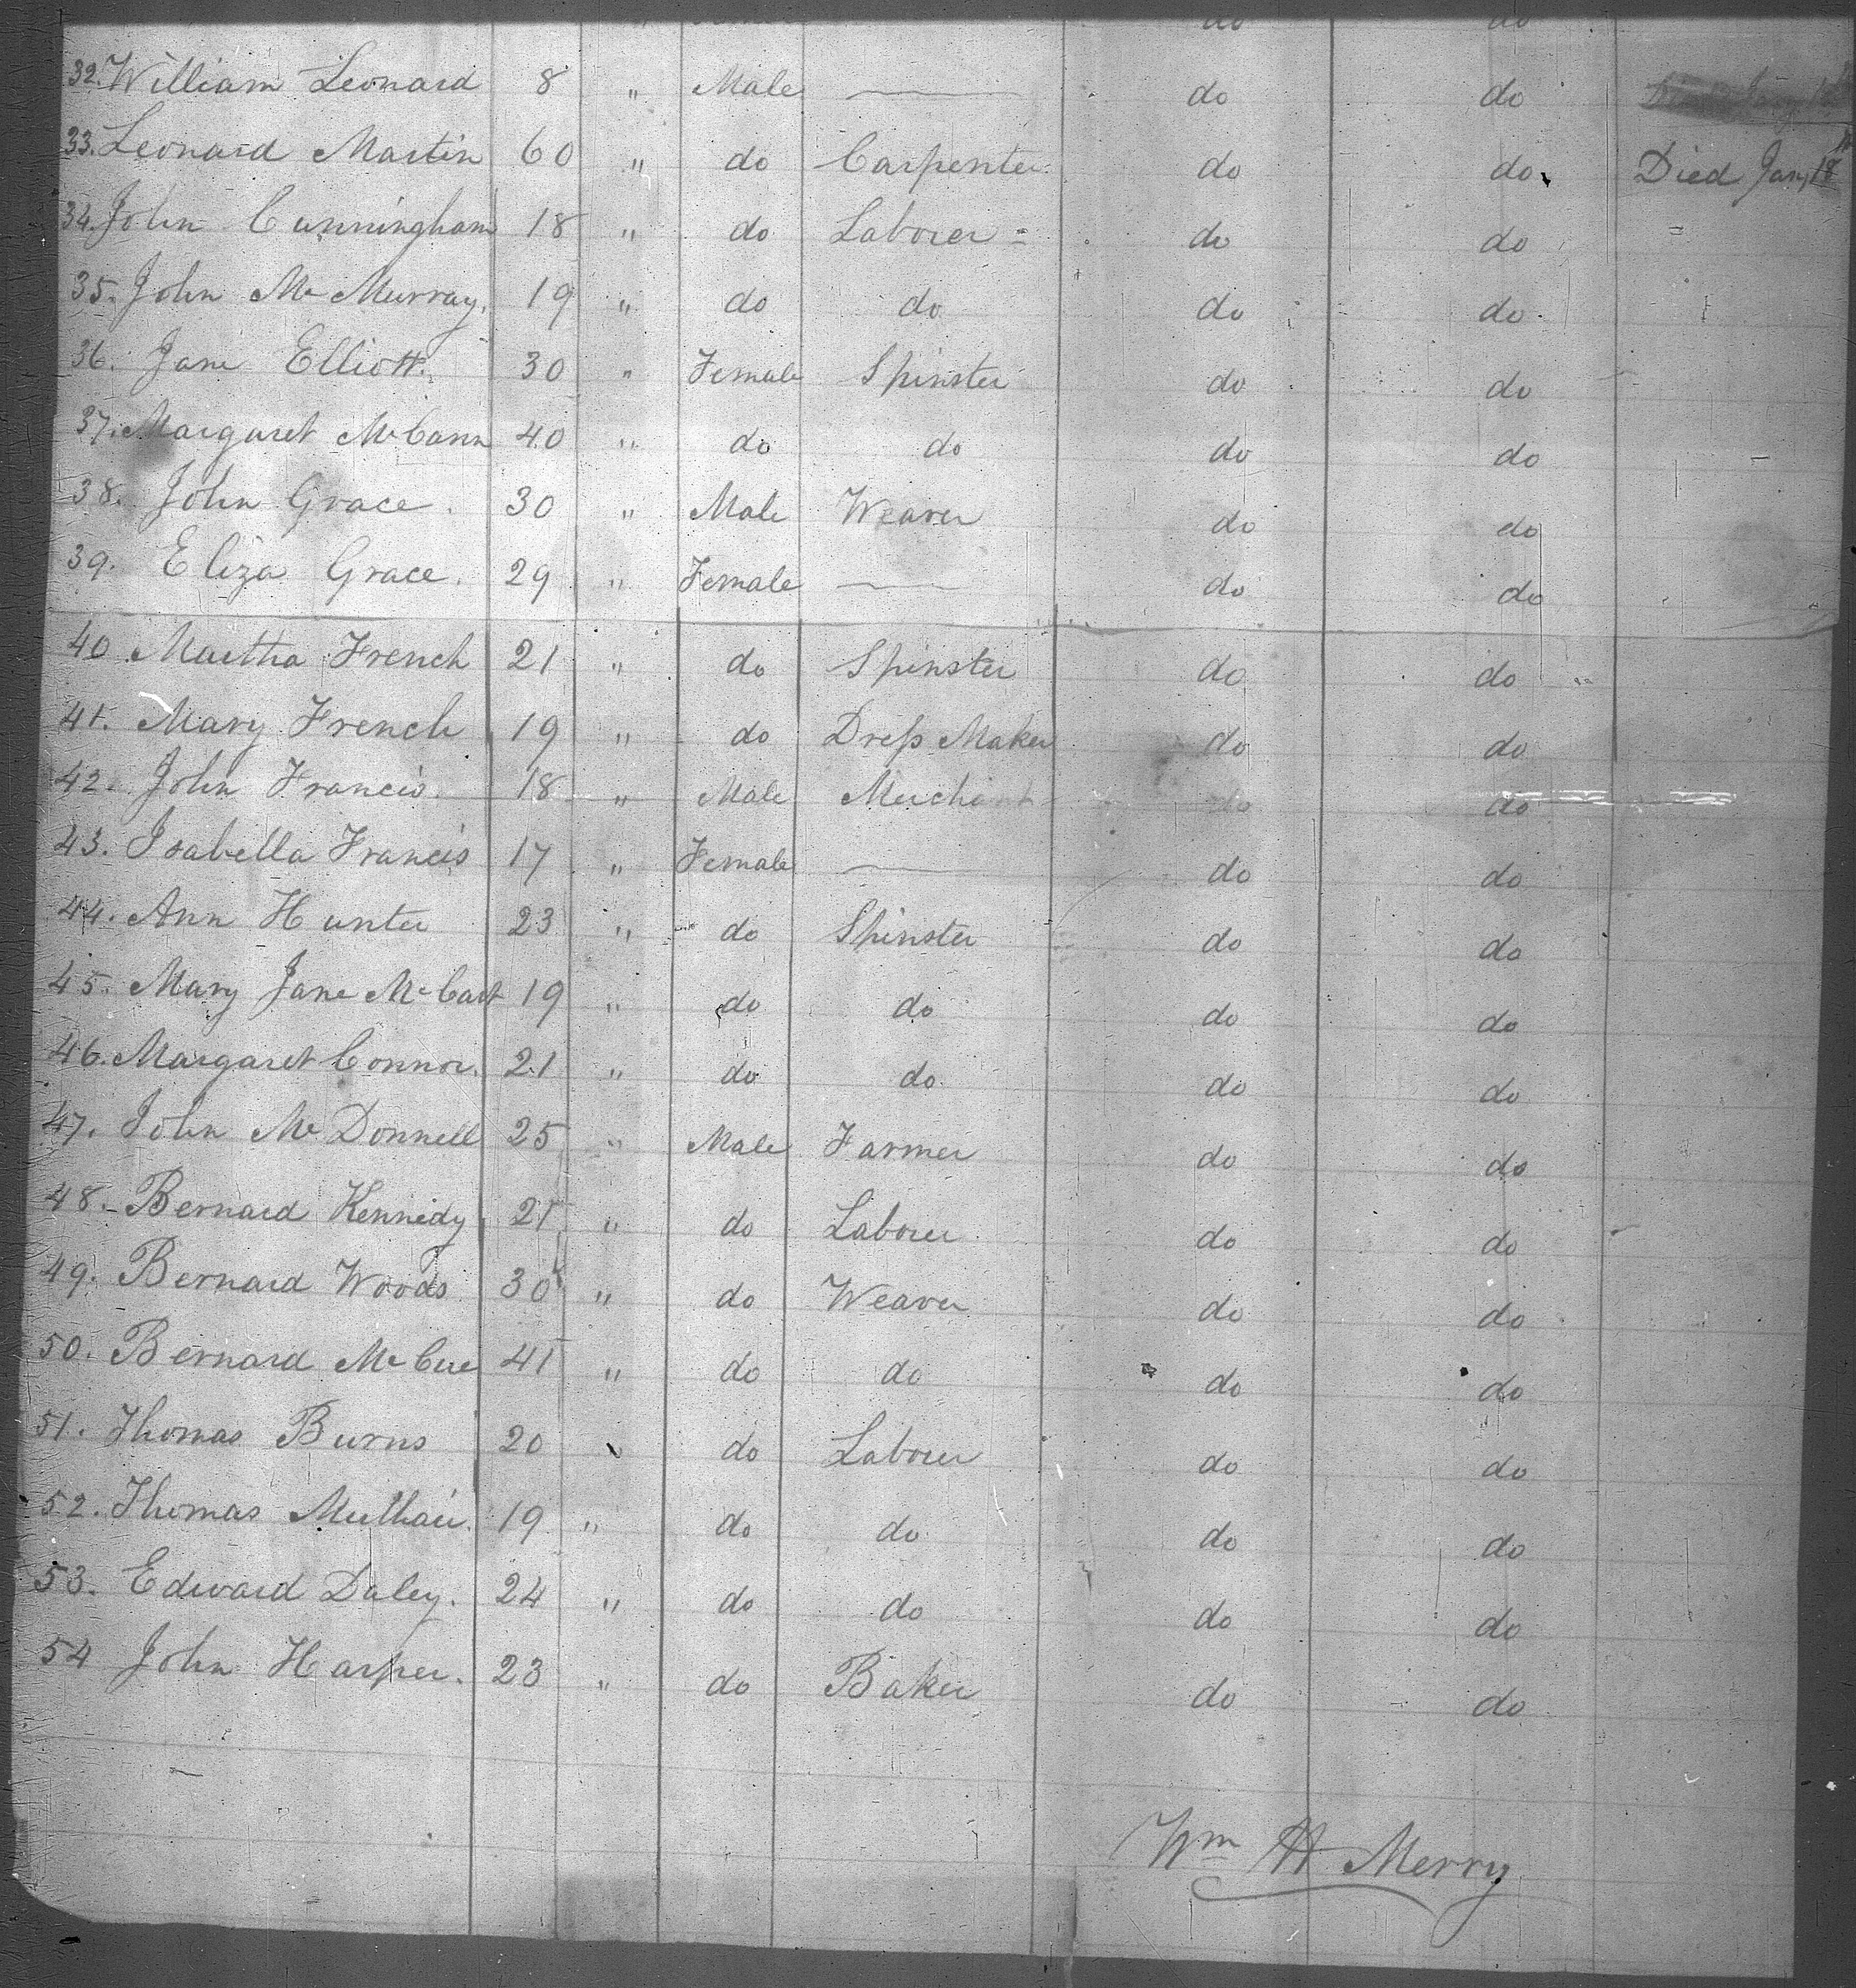 do do
32. William Leonard 8 " Male — do do
33. Leonard Martin 60 " do Carpenter do do Died Jany 18th
34. John Cunningham 18 " do Laborer do do
35. John Mc Murray. 19 " do do do do
36. Jane Elliott. 30 " Female Spinster do do
37. Margaret McCann 40 " do do do do
38. John Grace. 30 " Male Weaver do do
39. Eliza Grace. 29 " Female — do do
40. Martha French 21 " do Spinster do do
41. Mary French 19 " do Dress Maker do do
42. John Francis 18 " Male Merchant do do
43. Isabella Francis 17 " Female — do do
44. Ann Hunter 23 " do Spinster do do
45. Mary Jane McCart 19 " do do do do
46. Margaret Connor. 21 " do do do do
47. John McDonnell 25 " Male Farmer do do
48. Bernard Kennedy 21 " do Laborer do do
49. Bernard Woods 30 " do Weaver do do
50. Bernard McCue 41 " do do do do
51. Thomas Burns 20 " do Laborer do do
52. Thomas 19 " do do do do
53. Edward Daley. 24 " do do do do
54 John Harper. 23 " do Baker do do
Wm H Merry